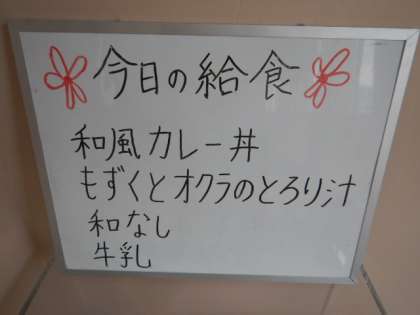 今日の給食
和風カレー丼
もずくとオクラのとろり汁
和なし
牛乳